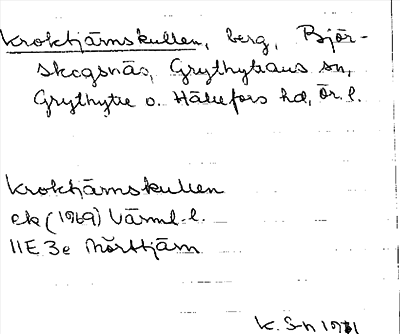 Kroktjärnskullen, berg, Björ-
skogsnäs, Grythyttans sn,
Grythytte o. Hällefors hd, Ör. l.
Kroktjärnskullen
ek (1969) Värml. l.
11E 3e Mörttjärn
K. S-n 1971